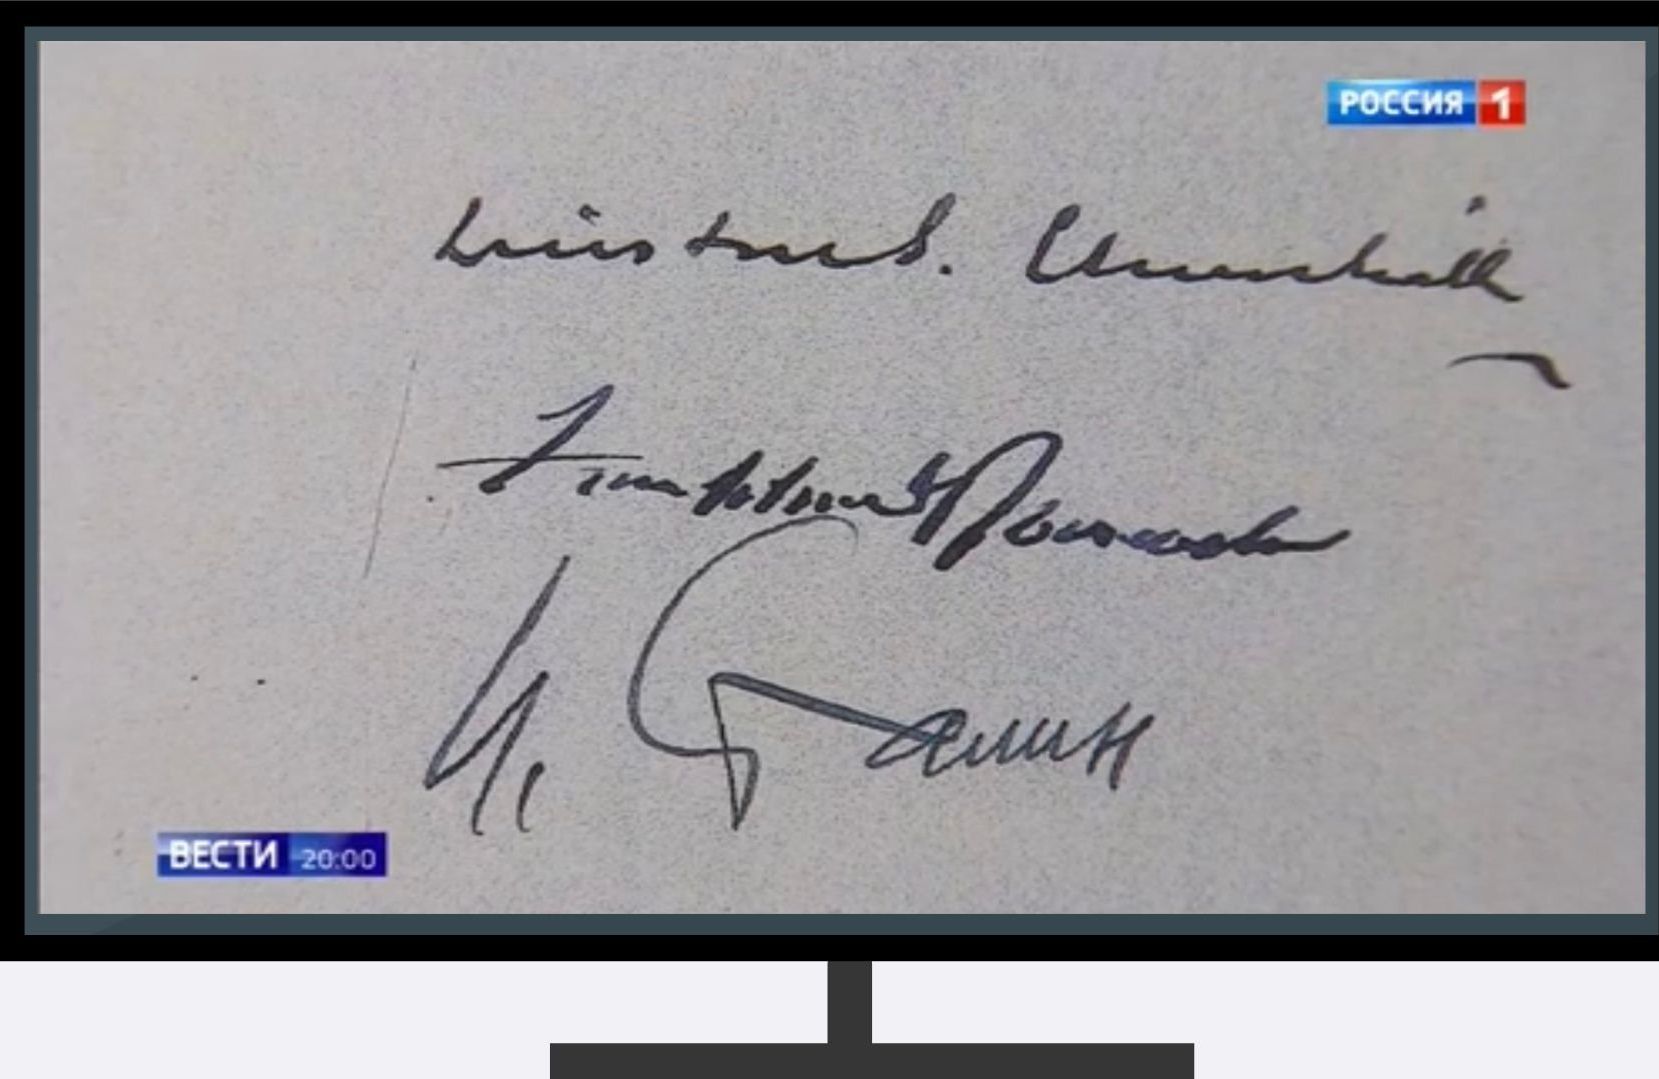 РОССИЯ 1
Winston S. Churchill
Franklin D Roosevelt
И. Сталин
ВЕСТИ 20:00